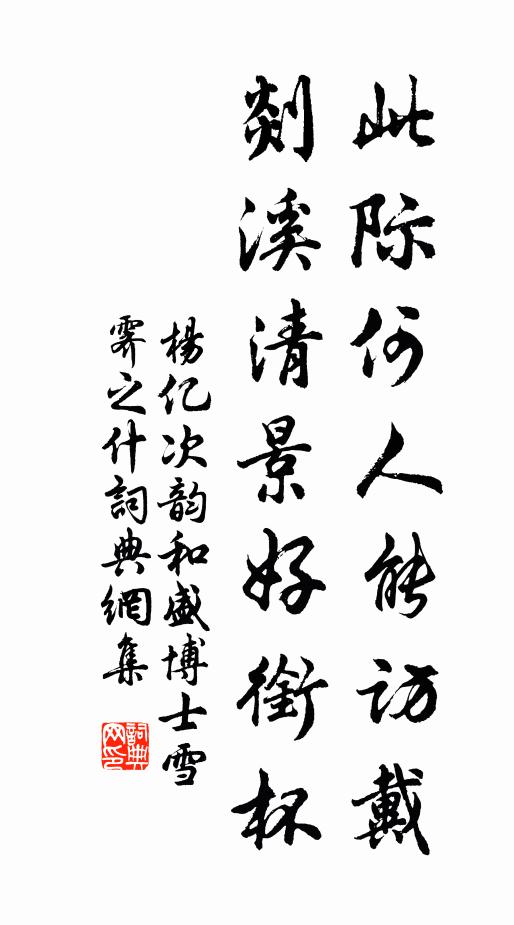 此际何人能访戴
剡溪清景好銜杯
楊亿次韵和盛博士雪
霁之什詞典網集
詞典网印